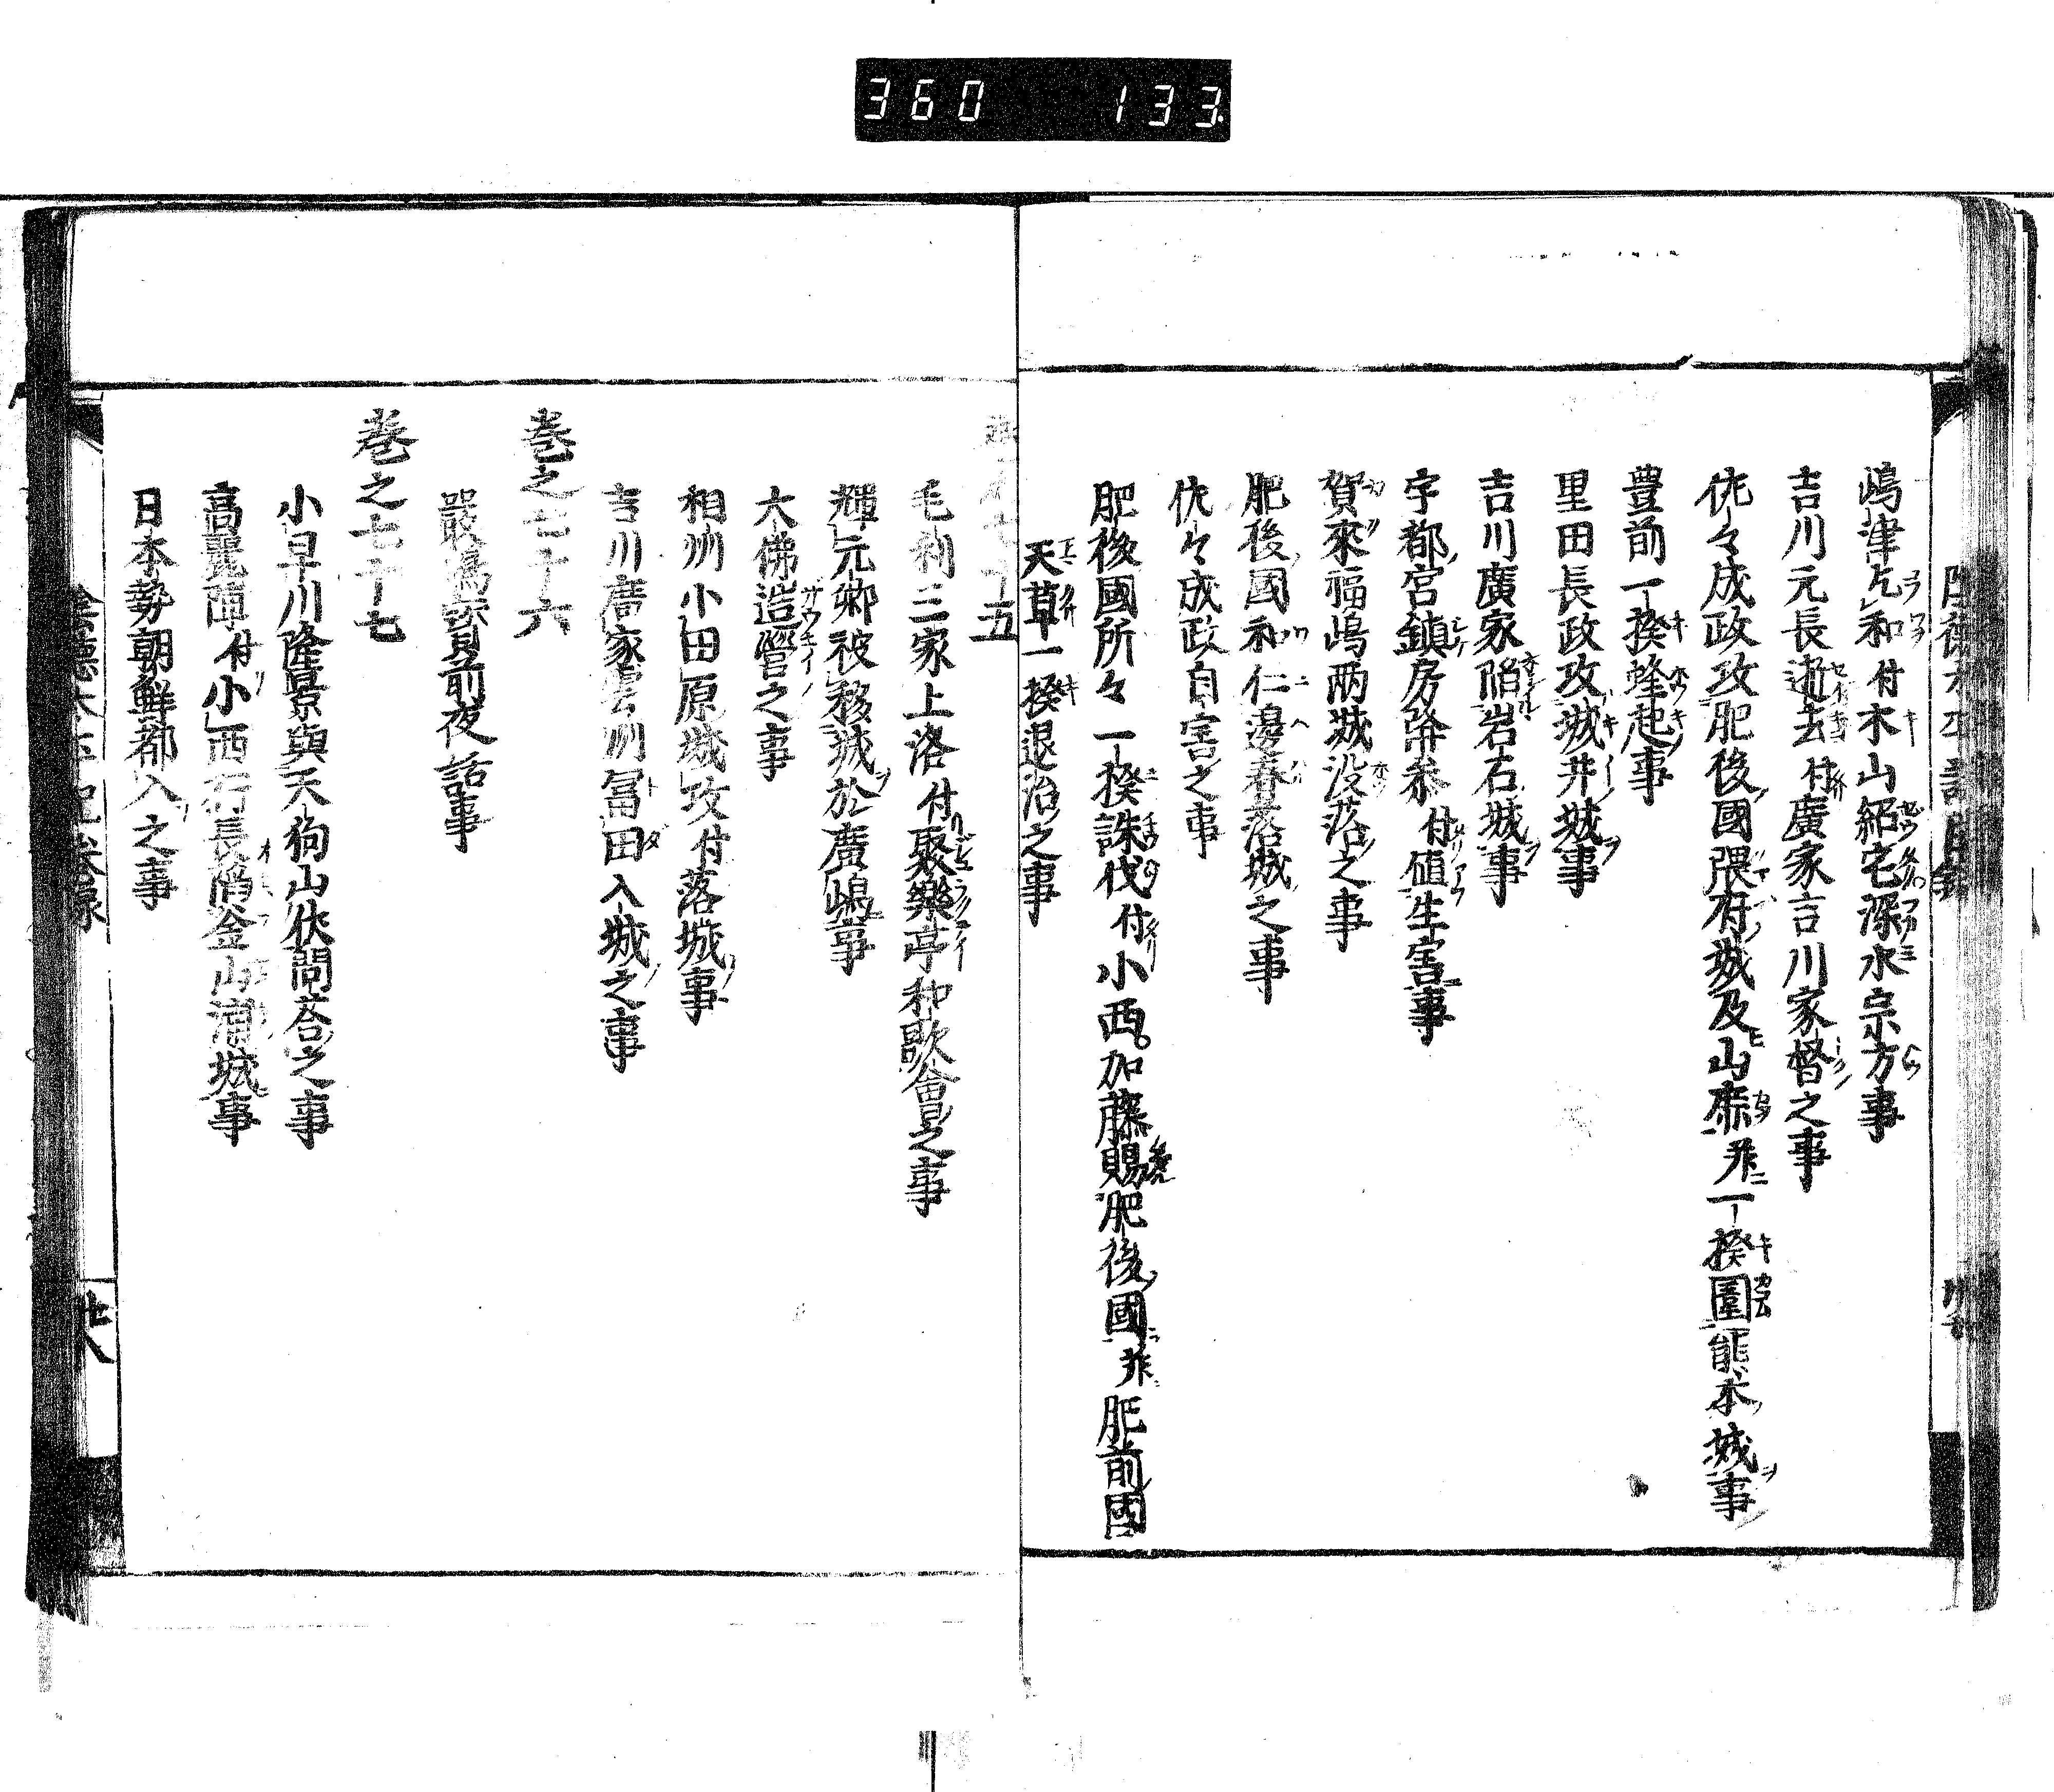 360 133
嶋津乞和付木山紹宅深水宗方事
吉川元長逝去付廣家吉川家督之事
佐々成政攻肥後國隈府城及山鹿并一揆圍熊本城事
豊前一揆蜂起事
里田長政攻城井城事
吉川廣家陥岩石城事
宇都宮鎮房降参付殖生害事
賀來福嶋两城没落之事
肥後國和仁邉春落城之事
佐々成政自害之事
肥後國所々一揆誅伐付小西加藤賜肥後國并肥前國
天草一揆退治之事
五
毛利三家上洛付聚樂亭和歌會之事
輝元卿被移城於廣嶋事
大佛造營之事
相州小田原城攻付落城事
吉川廣家雲州冨田入城之事
巻之七十六
嚴嶋宮前夜話事
巻之七十七
小早川隆景與天狗山伏問荅之事
高麗陣付小西行長陥釜山浦城事
日本勢朝鮮都入之事
廿八